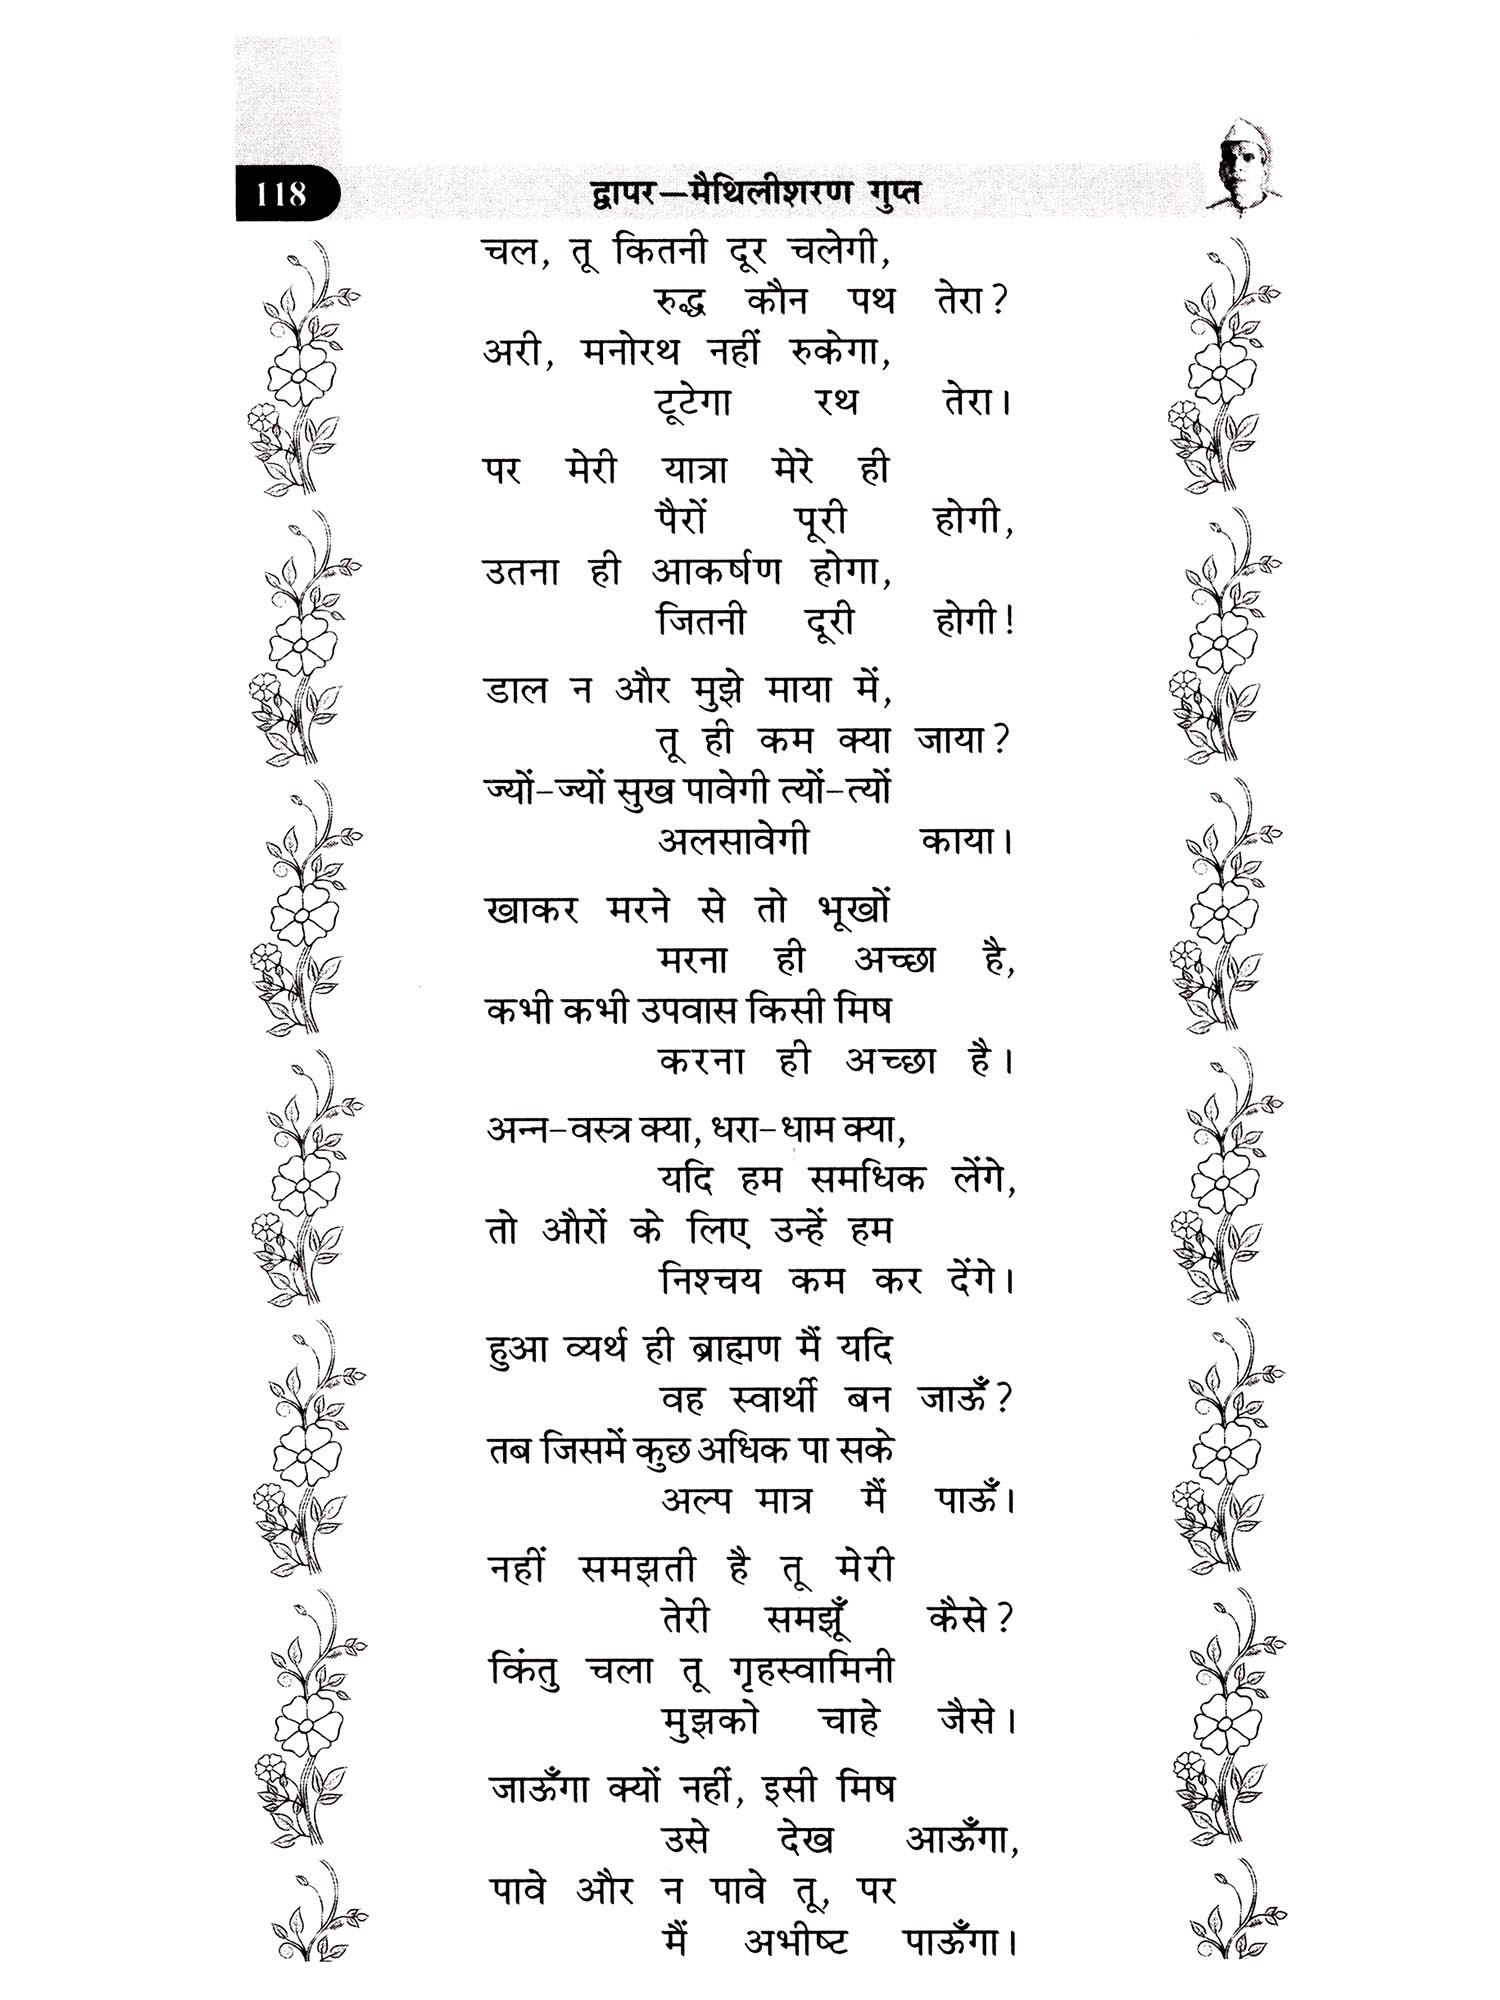 118
द्वापर—मैथिलीशरण गुप्त
चल, तू कितनी दूर चलेगी,
रुद्ध कौन पथ तेरा?
अरी, मनोरथ नहीं रुकेगा,
टूटेगा रथ तेरा।
पर मेरी यात्रा मेरे ही
पैरों पूरी होगी,
उतना ही आकर्षण होगा,
जितनी दूरी होगी!
डाल न और मुझे माया में,
तू ही कम क्या जाया?
ज्यों-ज्यों सुख पावेगी त्यों-त्यों
अलसावेगी काया।
खाकर मरने से तो भूखों
मरना ही अच्छा है,
कभी कभी उपवास किसी मिष
करना ही अच्छा है।
अन्न-वस्त्र क्या, धरा-धाम क्या,
यदि हम समधिक लेंगे,
तो औरों के लिए उन्हें हम
निश्चय कम कर देंगे।
हुआ व्यर्थ ही ब्राह्मण मैं यदि
वह स्वार्थी बन जाऊँ?
तब जिसमें कुछ अधिक पा सके
अल्प मात्र मैं पाऊँ।
नहीं समझती है तू मेरी
तेरी समझूँ कैसे?
किंतु चला तू गृहस्वामिनी
मुझको चाहे जैसे।
जाऊँगा क्यों नहीं, इसी मिष
उसे देख आऊँगा,
पावे और न पावे तू, पर
मैं अभीष्ट पाऊँगा।